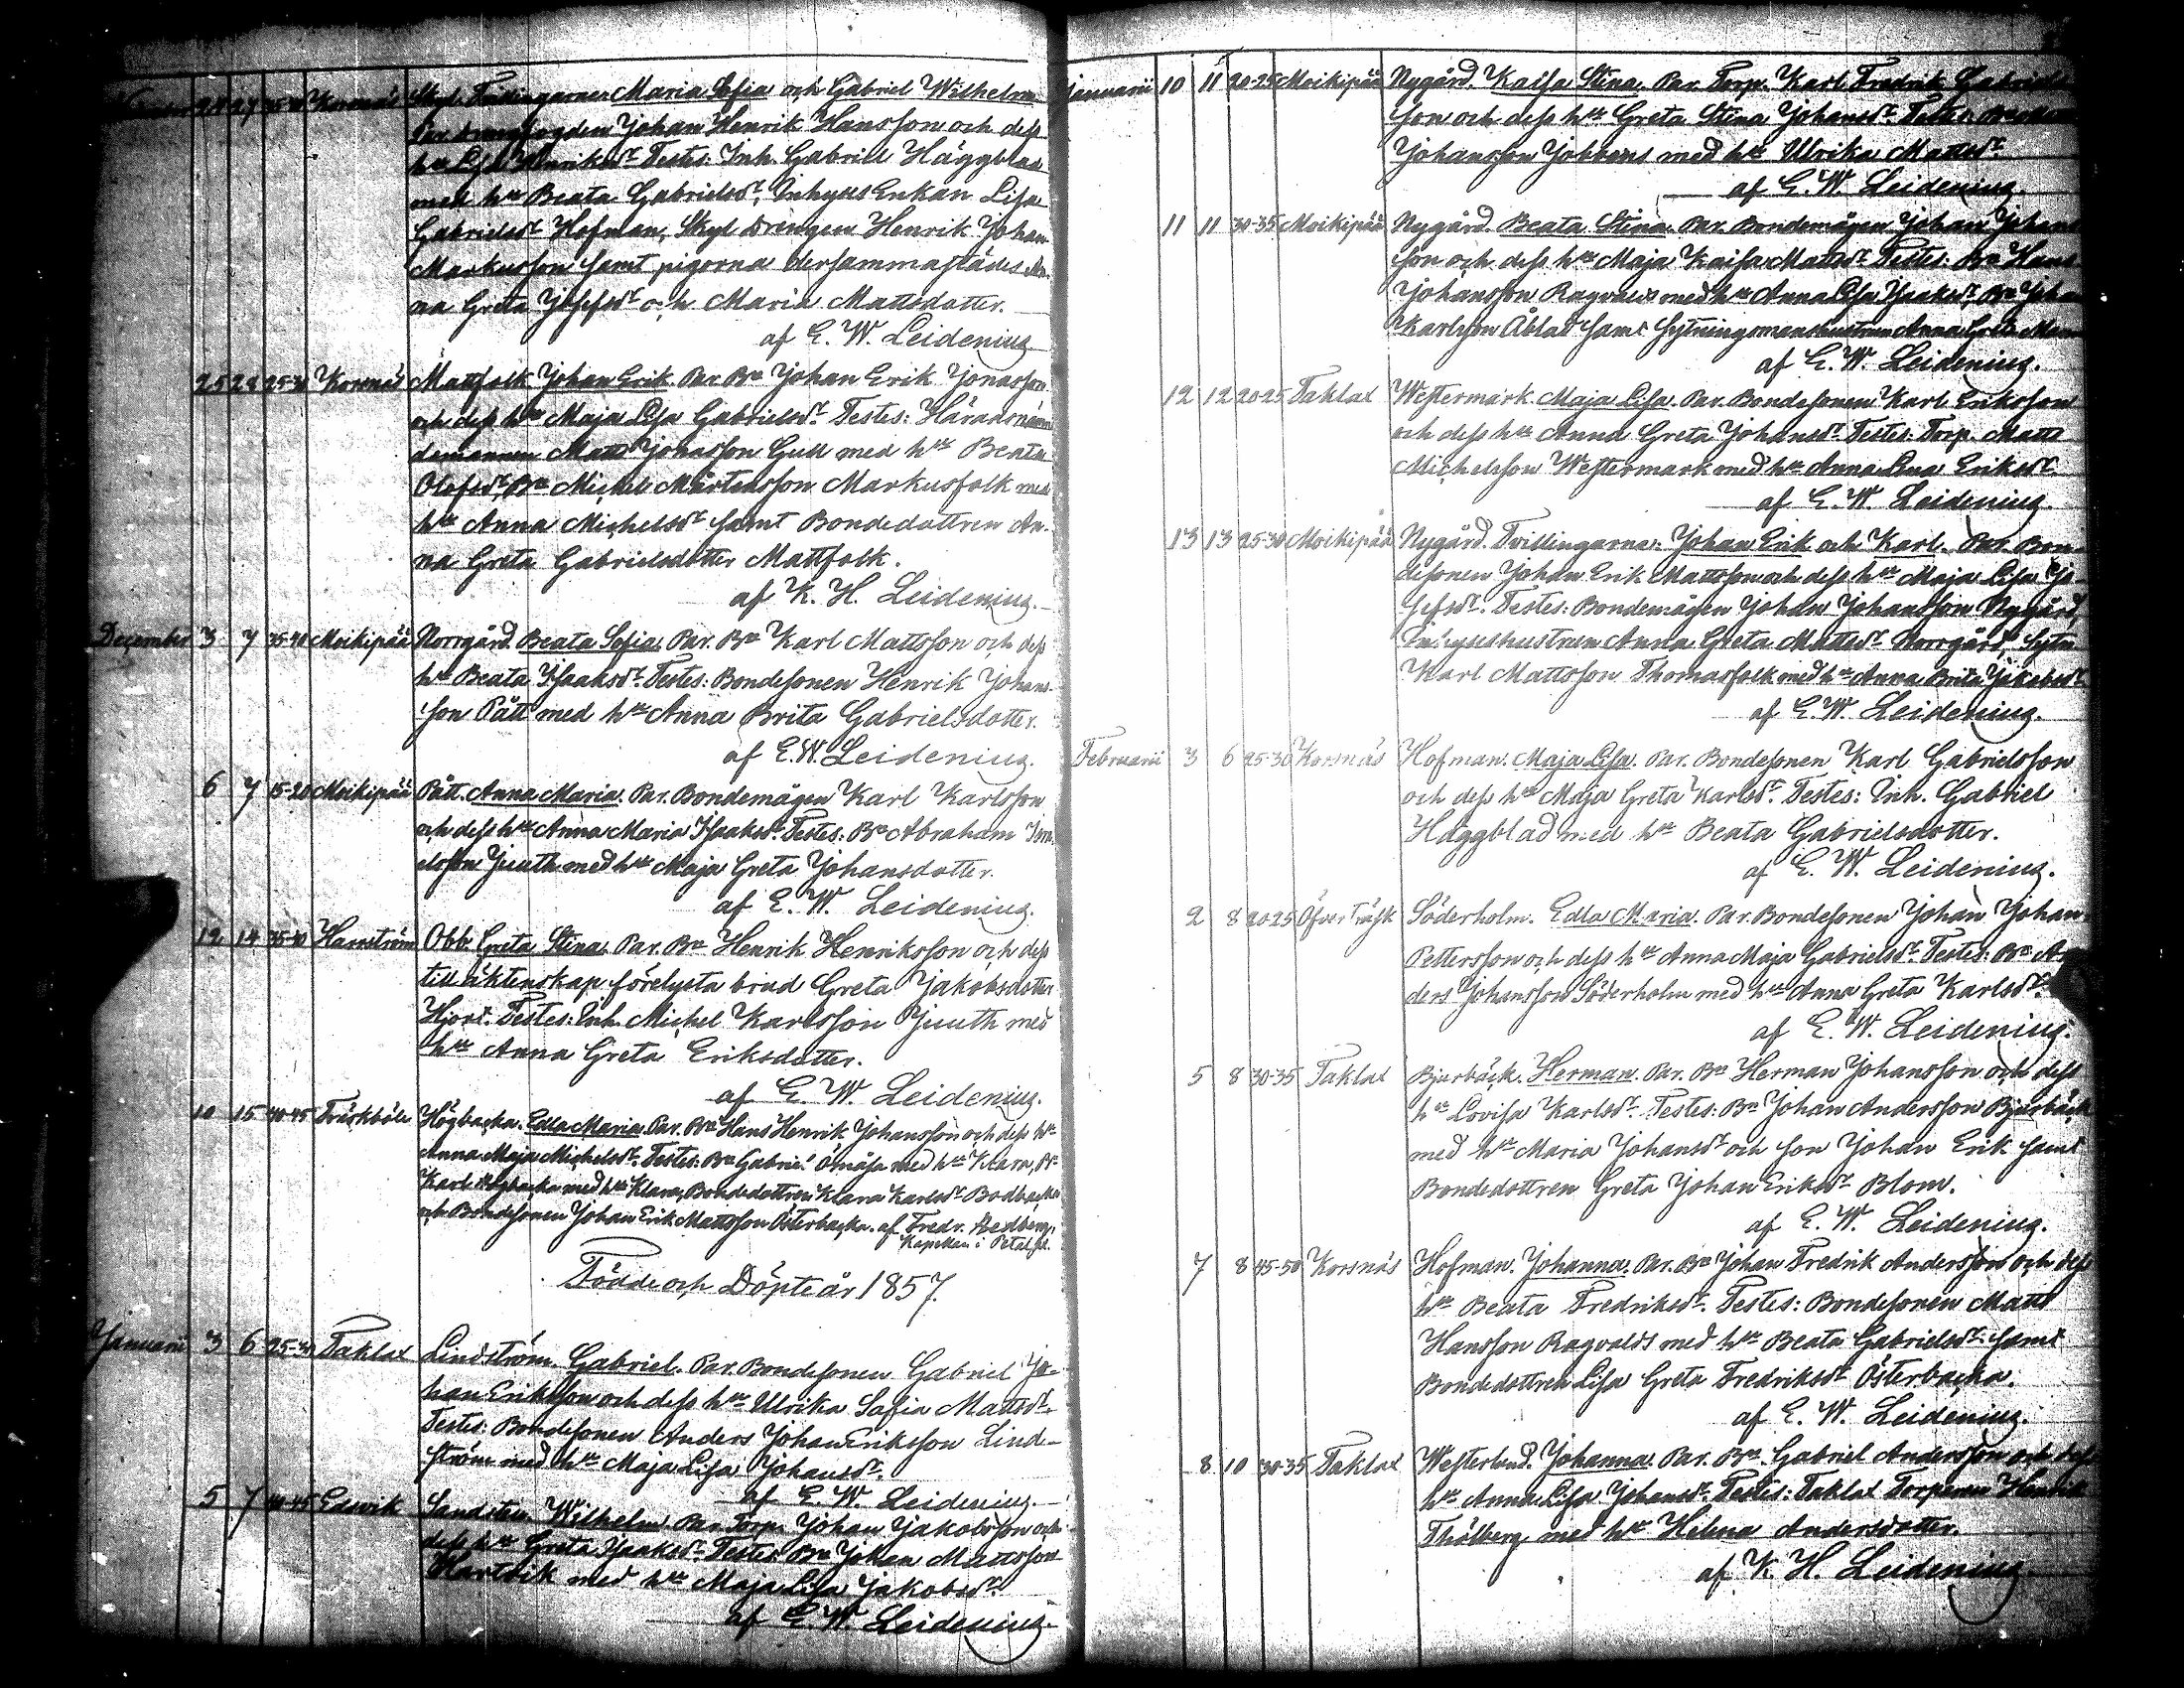 24 27 35-40 Korsnäs Skyt. Tvillingarna Maria Sofia och Gabriel Wilhelm.
Par. Johan Henrik Hansson och dess
hu Lisa Henriksdr. Testes: Inh. Gabriel Häggblad
med hu Beata Gabrielsdr, Inhyses Enkan Lisa
Gabrielsdr Hofman, Skyt drengen Henrik Johan
Markusson samt pigorna dersammastädes An-
na Greta Josefsdr och Maria Mattsdotter.
af E. W. Leidenius
25 28 25-30 Korsnäs Mattfolk Johan Erik Par. Bn Johan Erik Jonasson
och dess hu Maja Lisa Gabrielsdr. Testes: Häradsnämn
demannen Matts Jonasson Gull med hu Beata
Olofsdr, Bn Michel Mårtensson Markusfolk med
hu Anna Michelsdr samt Bondedottren An-
na Greta Gabrielsdotter Mattfolk.
af K. H. Leidenius.
December 3 7 35-40 Moikipää Norrgård. Beata Sofia. Par. Bn Karl Mattsson och dess
hu Beata Isaaksdr. Testes: Bondesonen Henrik Johans-
son Pått med hu Anna Brita Gabrielsdotter.
af E. W. Leidenius.
6 7 15-20 Moikipää Pått. Anna Maria. Par. Bondemågen Karl Karlsson
och dess hu Anna Maria Isaaksdr. Testes: Bn Abraham Isra-
elsson Juuth med hu Maja Greta Johansdotter.
af E. W. Leidenius.
12 14 35-40 Harrström Obb. Greta Stina. Par. Bn Henrik Henriksson och dess
till äktenskap förelysta brud Greta Jakobsdotter
Hjort. Testes: Inh. Michel Karlsson Juuth med
hu Anna Greta Eriksdotter.
af E. W. Leidenius.
10 15 40-45 Träskböle Högbacka. Edla Maria. Par. Bn Hans Henrik Johansson och dess hu
Anna Maja Michelsdr. Testes: Bn Gabriel med hu Klara, Bn
Karl Högbacka med hu Klara, Bondedottren Klara Karlsdr Bodbacka
och Bondesonen Johan Erik Mattsson Österbacka. af Fredr. Hedberg,
Kapellan i Petalaks.
Födde och Döpte år 1857.
Januarii 3 6 25-30 Taklax Lindström. Gabriel. Par. Bondesonen Gabriel Jo-
han Eriksson och dess hu Ulrika Sofia Mattsdr.
Testes: Bondesonen Anders Johan Eriksson Lind-
ström med hu Maja Lisa Johansdr.
af E. W. Leidenius.
5 7 40-45 Edsvik Sandsten Wilhelm Par. Torp. Johan Jakobsson och
dess hu Greta Isaaksdr. Testes: Bn Johan Mattsson
Hartvik med hu Maja Lisa Jakobsdr.
af E. W. Leidenius.
Januarii 10 11 20-25 Moikipää Nygård. Kaisa Stina. Par. Torp. Karl Fredrik Gabriels
son och dess hu Greta Stina Johansdr. Testes:
Johansson Jobbens med hu Ulrika Mattsdr.
af E. W. Leidenius.
11 11 30-35 Moikipää Nygård. Beata Stina. Par. Bondemågen Johan Johans
son och dess hu Maja Kaisa Mattsdr. Testes: Bn Hans
Johansson Ragvalds med hu Anna Lisa Isaaksdr, Bn Johan
Karlsson Åblad samt Sytningsmanshustrun Anna Greta
af E. W. Leidenius.
12 12 20-25 Taklax Westermark. Maja Lisa. Par. Bondesonen Karl Eriksson
och dess hu Anna Greta Johansdr. Testes: Torp. Matts
Michelsson Westermark med hu Anna Lena Eriksdr.
af E. W. Leidenius.
13 13 25-30 Moikipää Nygård. Tvillingarna: Johan Erik och Karl. Par. Bon-
desonen Johan Erik Mattsson och dess hu Maja Lisa Jo-
sefsdr. Testes: Bondemågen Johan Johansson Nygård,
Inhyseshustrun Anna Greta Mattsdr Norrgård, Sytn
Karl Mattsson Thomasfolk med hu Anna Brita Jakobsdr
af E. W. Leidenius.
Februarii 3 6 25-30 Korsnäs Hofman. Maja Lisa. Par. Bondesonen Karl Gabrielsson
och dess hu Maja Greta Karlsdr. Testes: Inh. Gabriel
Häggblad med hu Beata Gabrielsdotter.
af E. W. Leidenius.
2 8 20-25 Öfver Träsk Söderholm. Edla Maria. Par. Bondesonen Johan Johan
Pettersson och dess hu Anna Maja Gabrielsdr. Testes: Bn An
ders Johansson Söderholm med hu Anna Greta Karlsdr.
af E. W. Leidenius.
5 8 30-35 Taklax Bjurbäck. Herman. Par. Bn Herman Johansson och dess
hu Lovisa Karlsdr. Testes: Bn Johan Andersson Bjurbäck
med hu Maria Johansdr och son Johan Erik samt
Bondedottren Greta Johan Eriksdr Blom.
af E. W. Leidenius.
7 8 45-50 Korsnäs Hofman. Johanna. Par. Bn Johan Fredrik Andersson och dess
hu Beata Fredriksdr. Testes: Bondesonen Matts
Hansson Ragvalds med hu Beata Gabrielsdr. samt
Bondedottren Lisa Greta Fredriksdr Österbacka.
af E. W. Leidenius.
8 10 30-35 Taklax Westerlund. Johanna. Par. Bn Gabriel Andersson och dess
hu Anna Lisa Johansdr. Testes: Taklax Torparen Henrik
Thölberg med hu Helena Andersdotter.
af K. H. Leidenius.